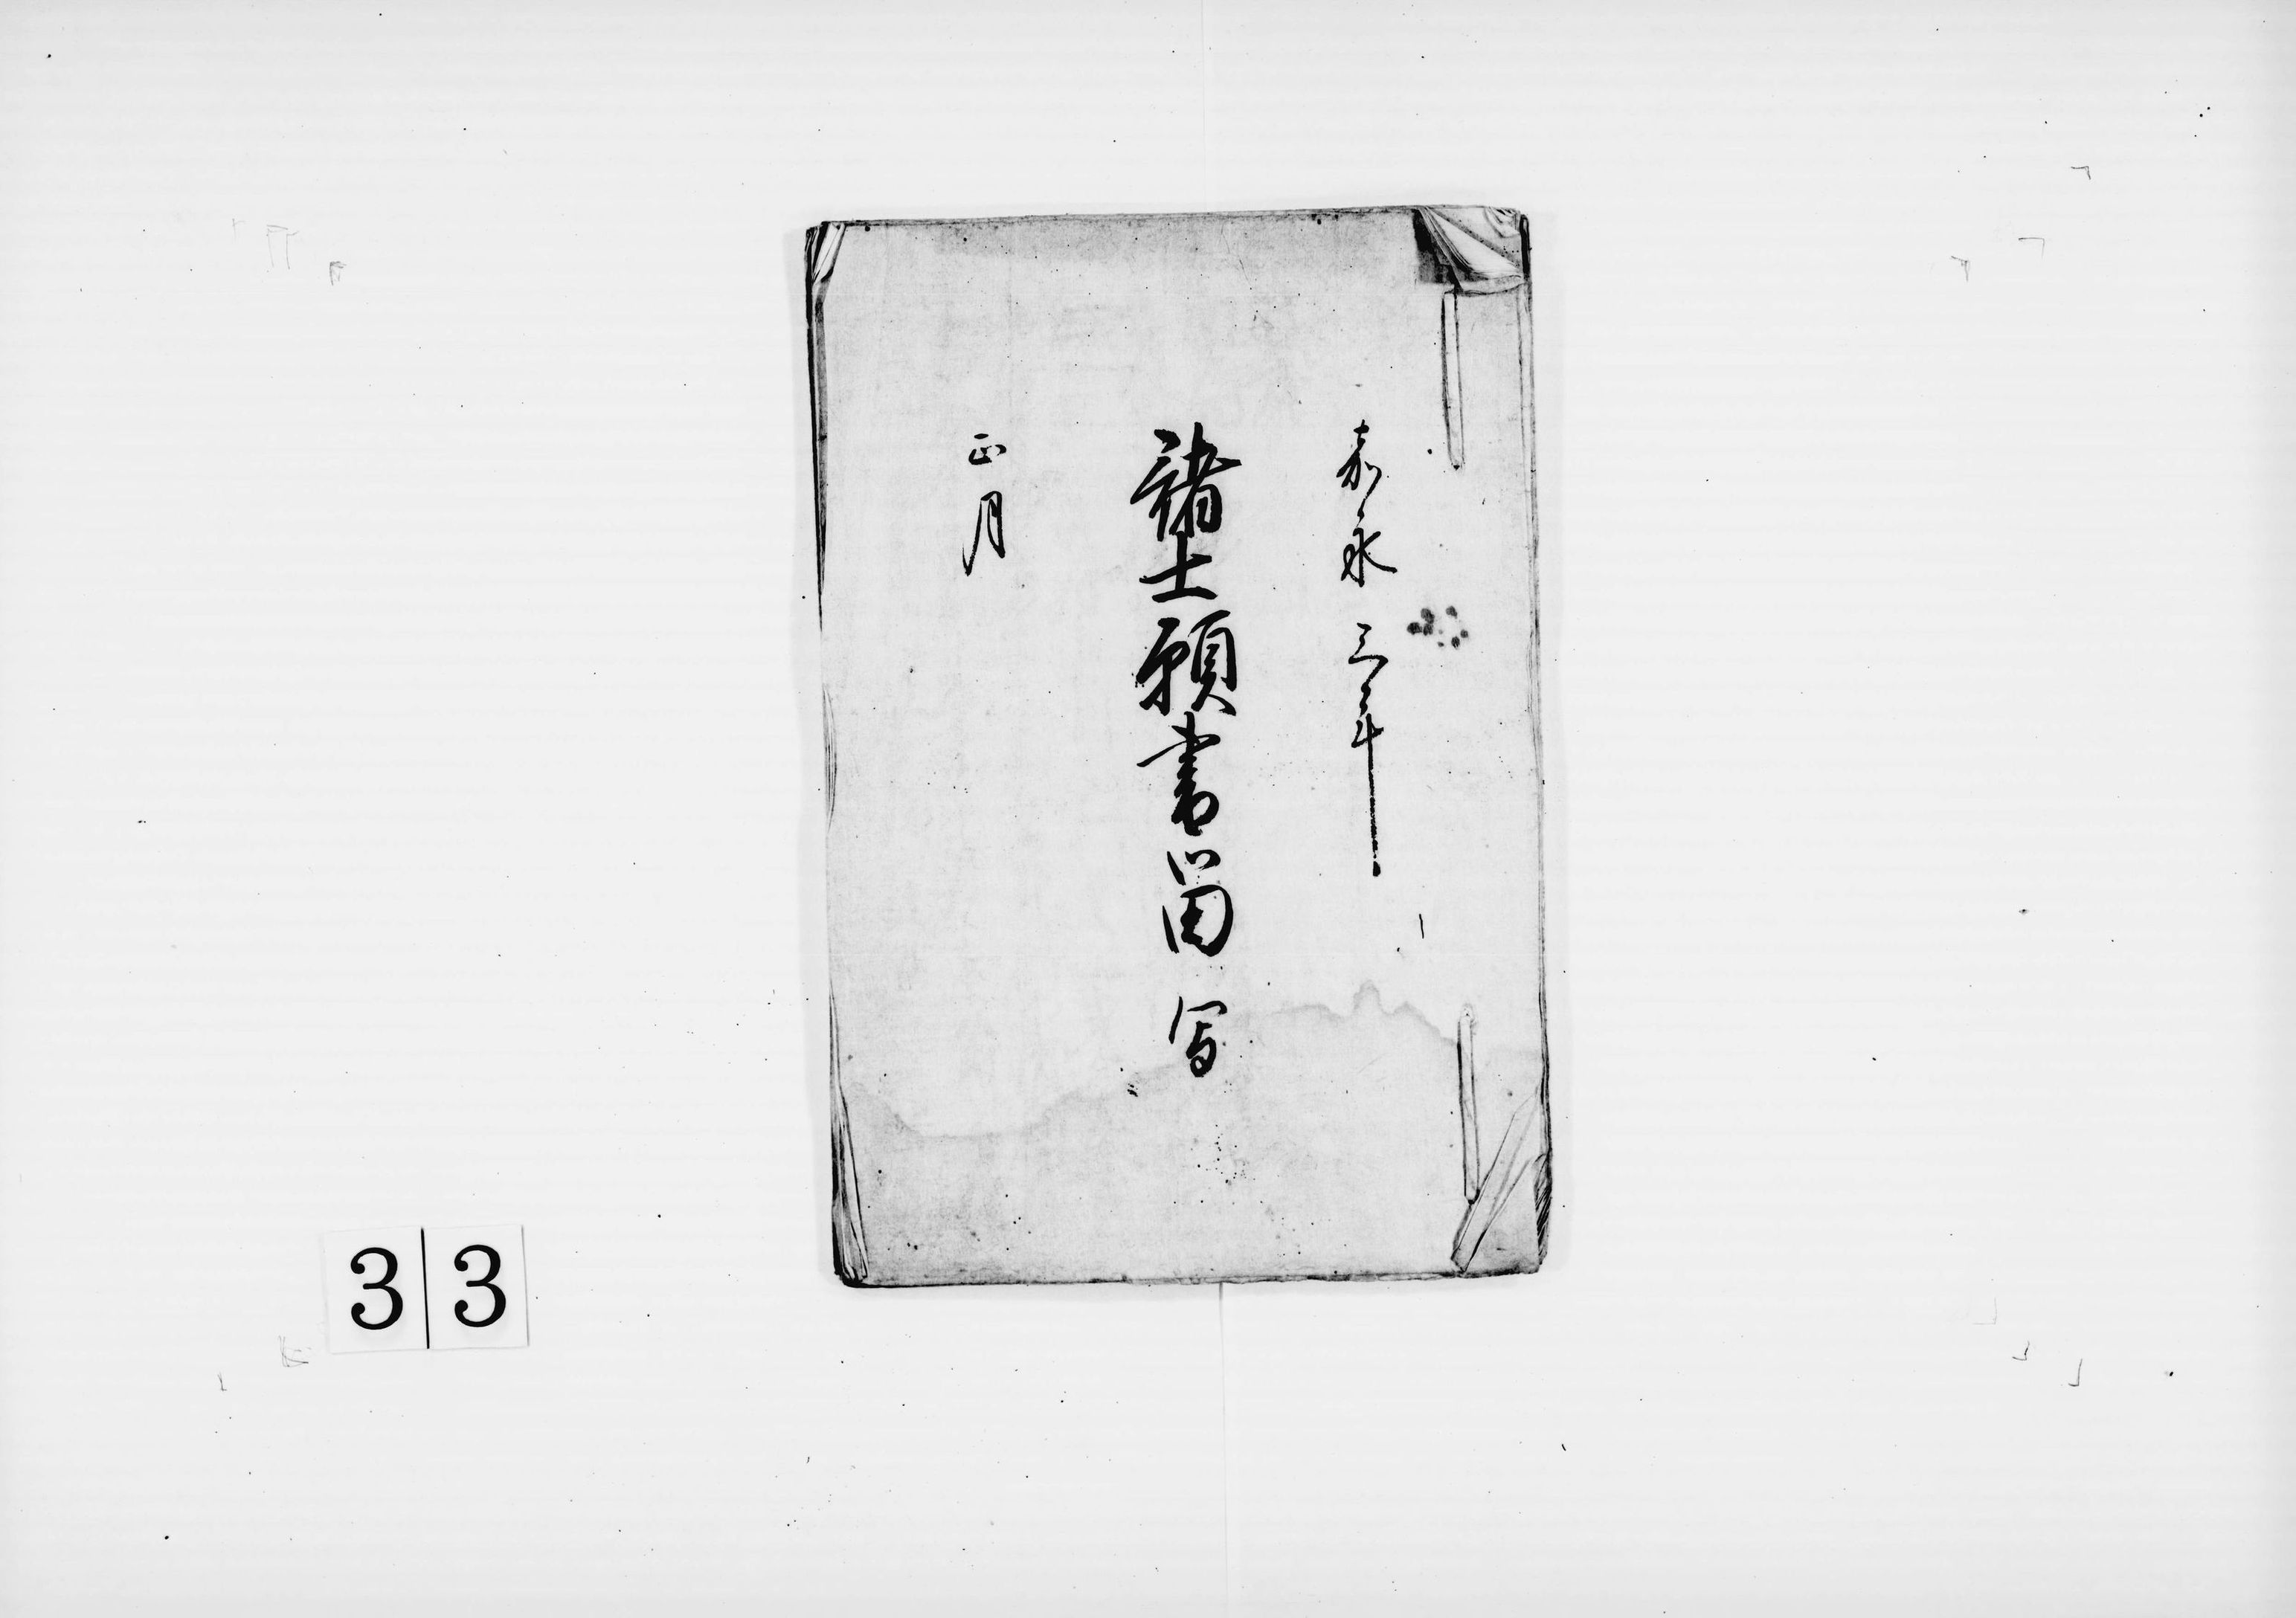 嘉永三年
諸士願書留写
正月
33